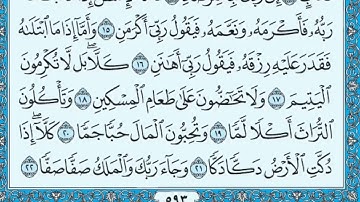 رَبُّهُۥ فَأَكْرَمَهُۥ وَنَعَّمَهُۥ فَيَقُولُ رَبِّيٓ أَكْرَمَنِ ١٥ وَأَمَّآ إِذَا مَا ٱبْتَلَىٰهُ
فَقَدَرَ عَلَيْهِ رِزْقَهُۥ فَيَقُولُ رَبِّيٓ أَهَٰنَنِ ١٦ كَلَّا ۖ بَل لَّا تُكْرِمُونَ
ٱلْيَتِيمَ ١٧ وَلَا تَحَٰٓضُّونَ عَلَىٰ طَعَامِ ٱلْمِسْكِينِ ١٨ وَتَأْكُلُونَ
ٱلتُّرَاثَ أَكْلًا لَّمًّا ١٩ وَتُحِبُّونَ ٱلْمَالَ حُبًّا جَمًّا ٢٠ كَلَّآ ۖ إِذَا
دُكَّتِ ٱلْأَرْضُ دَكًّا دَكًّا ٢١ وَجَآءَ رَبُّكَ وَٱلْمَلَكُ صَفًّا صَفًّا ٢٢
٥٩٣